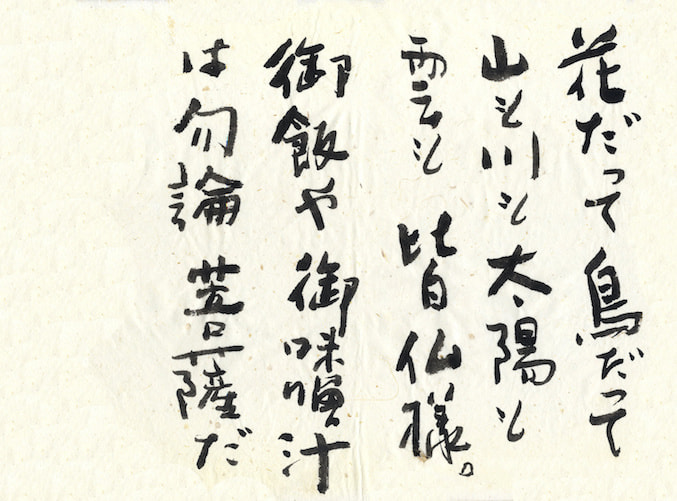 花だって鳥だって
山も川も太陽も
雲も 皆仏様。
御飯や御味噌汁
は勿論 菩薩だ